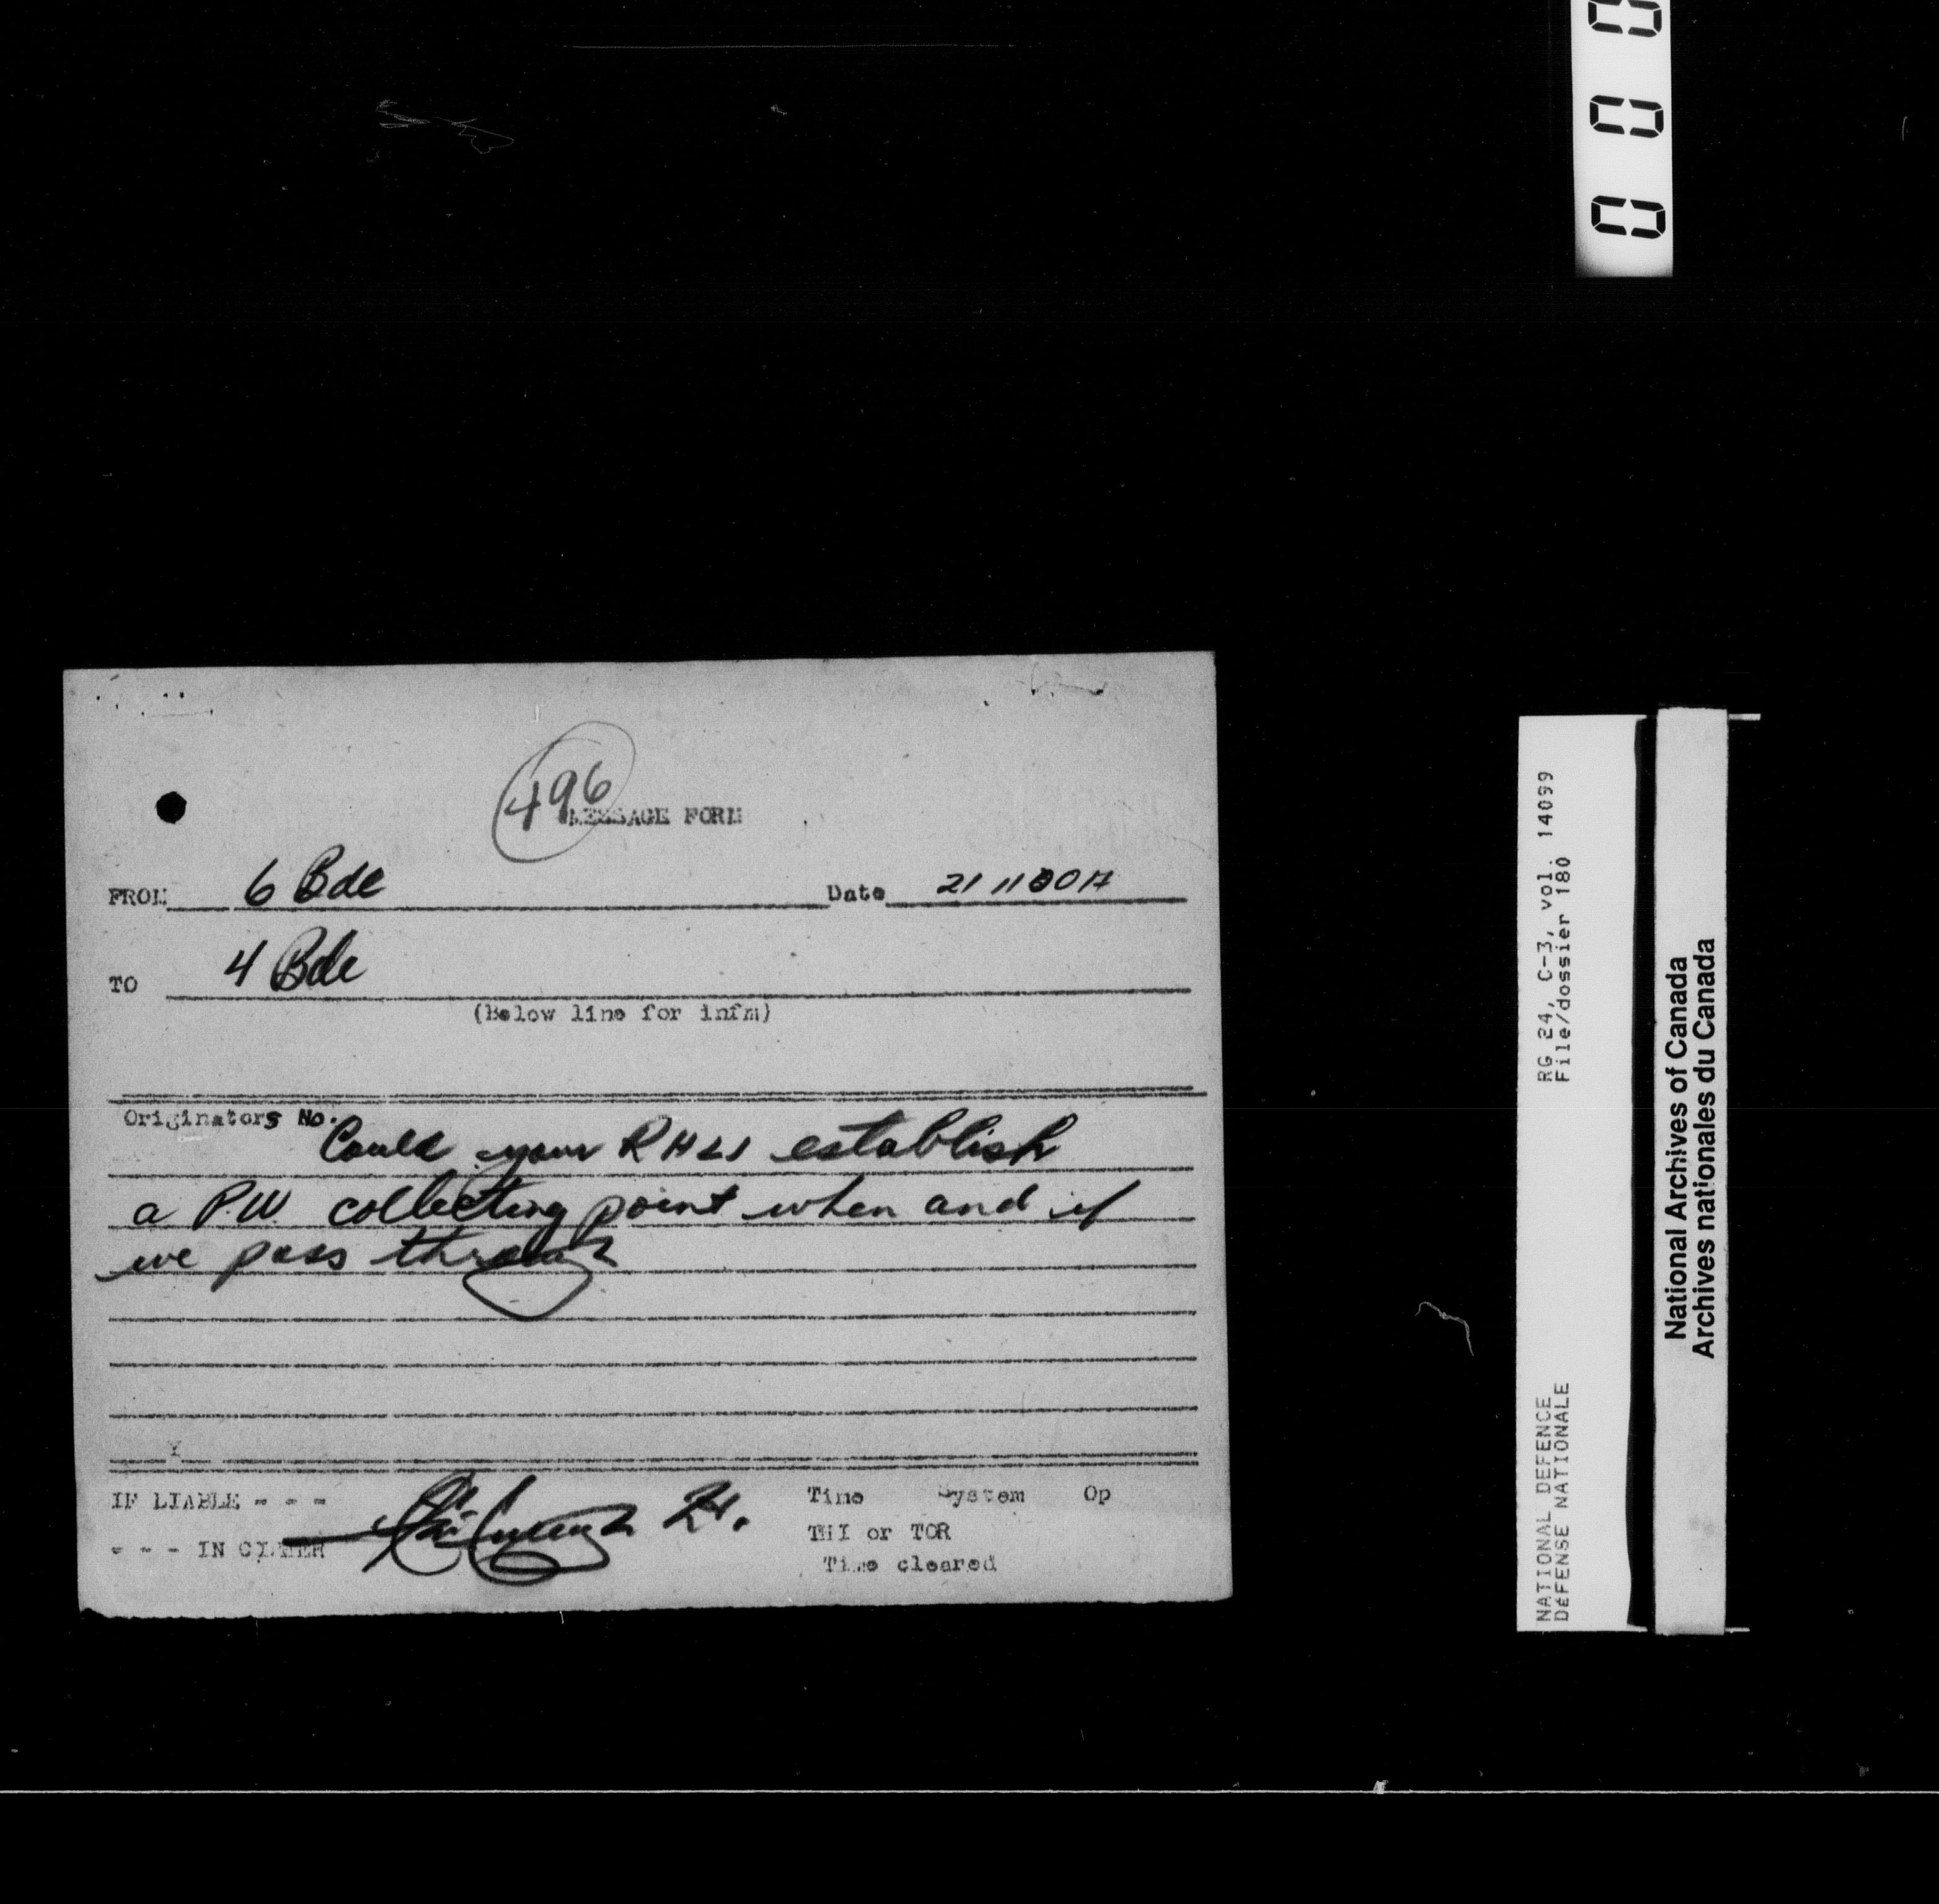 0 0 0
496
MESSAGE FORM
FROM 6 Bde Date 21 1130A
TO 4 Bde
(Below line for infm)
Originators No.
Could your RHLI establish
a P.W. collecting point when and if
we pass through
IF LIABLE - - - Time System Op
THI or TOR
- - - IN CIPHER
Time cleared
RG 24, C-3, vol. 14099
File/dossier 180
NATIONAL DEFENCE
DÉFENSE NATIONALE
National Archives of Canada
Archives nationales du Canada